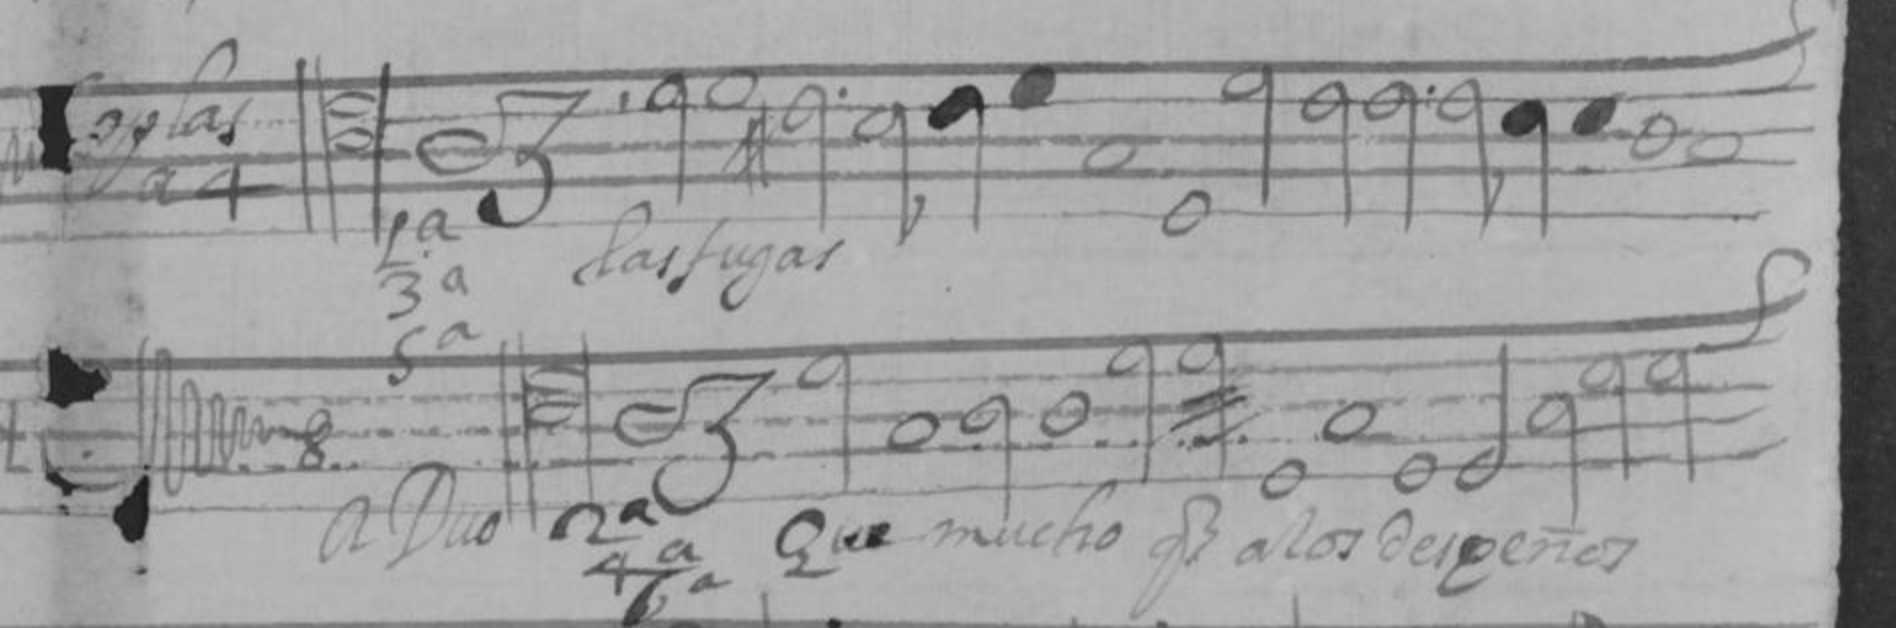 Coplas
a 4
1.a
3a
5a
las fugas
A Duo
2a
4a
6a
Que mucho q̃ a los despeños